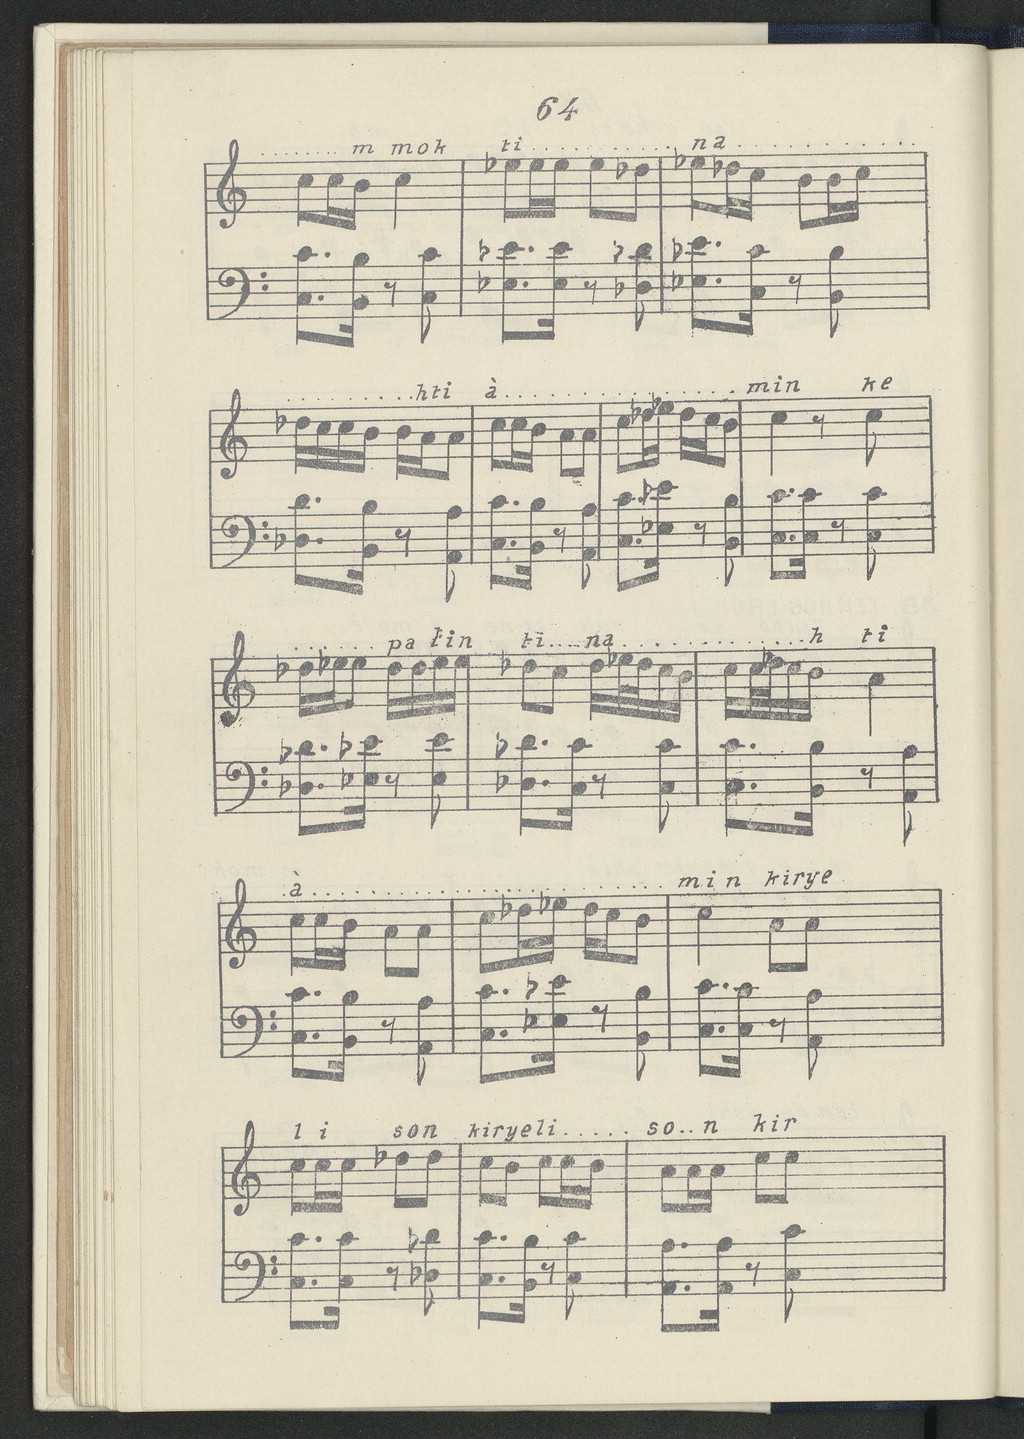 64
........ m mok ti............ na.............
............hti à..................min ke
....... pa lin ti....na..............h ti
à......................... min kirye
l i son kiryeli..... so..n kir